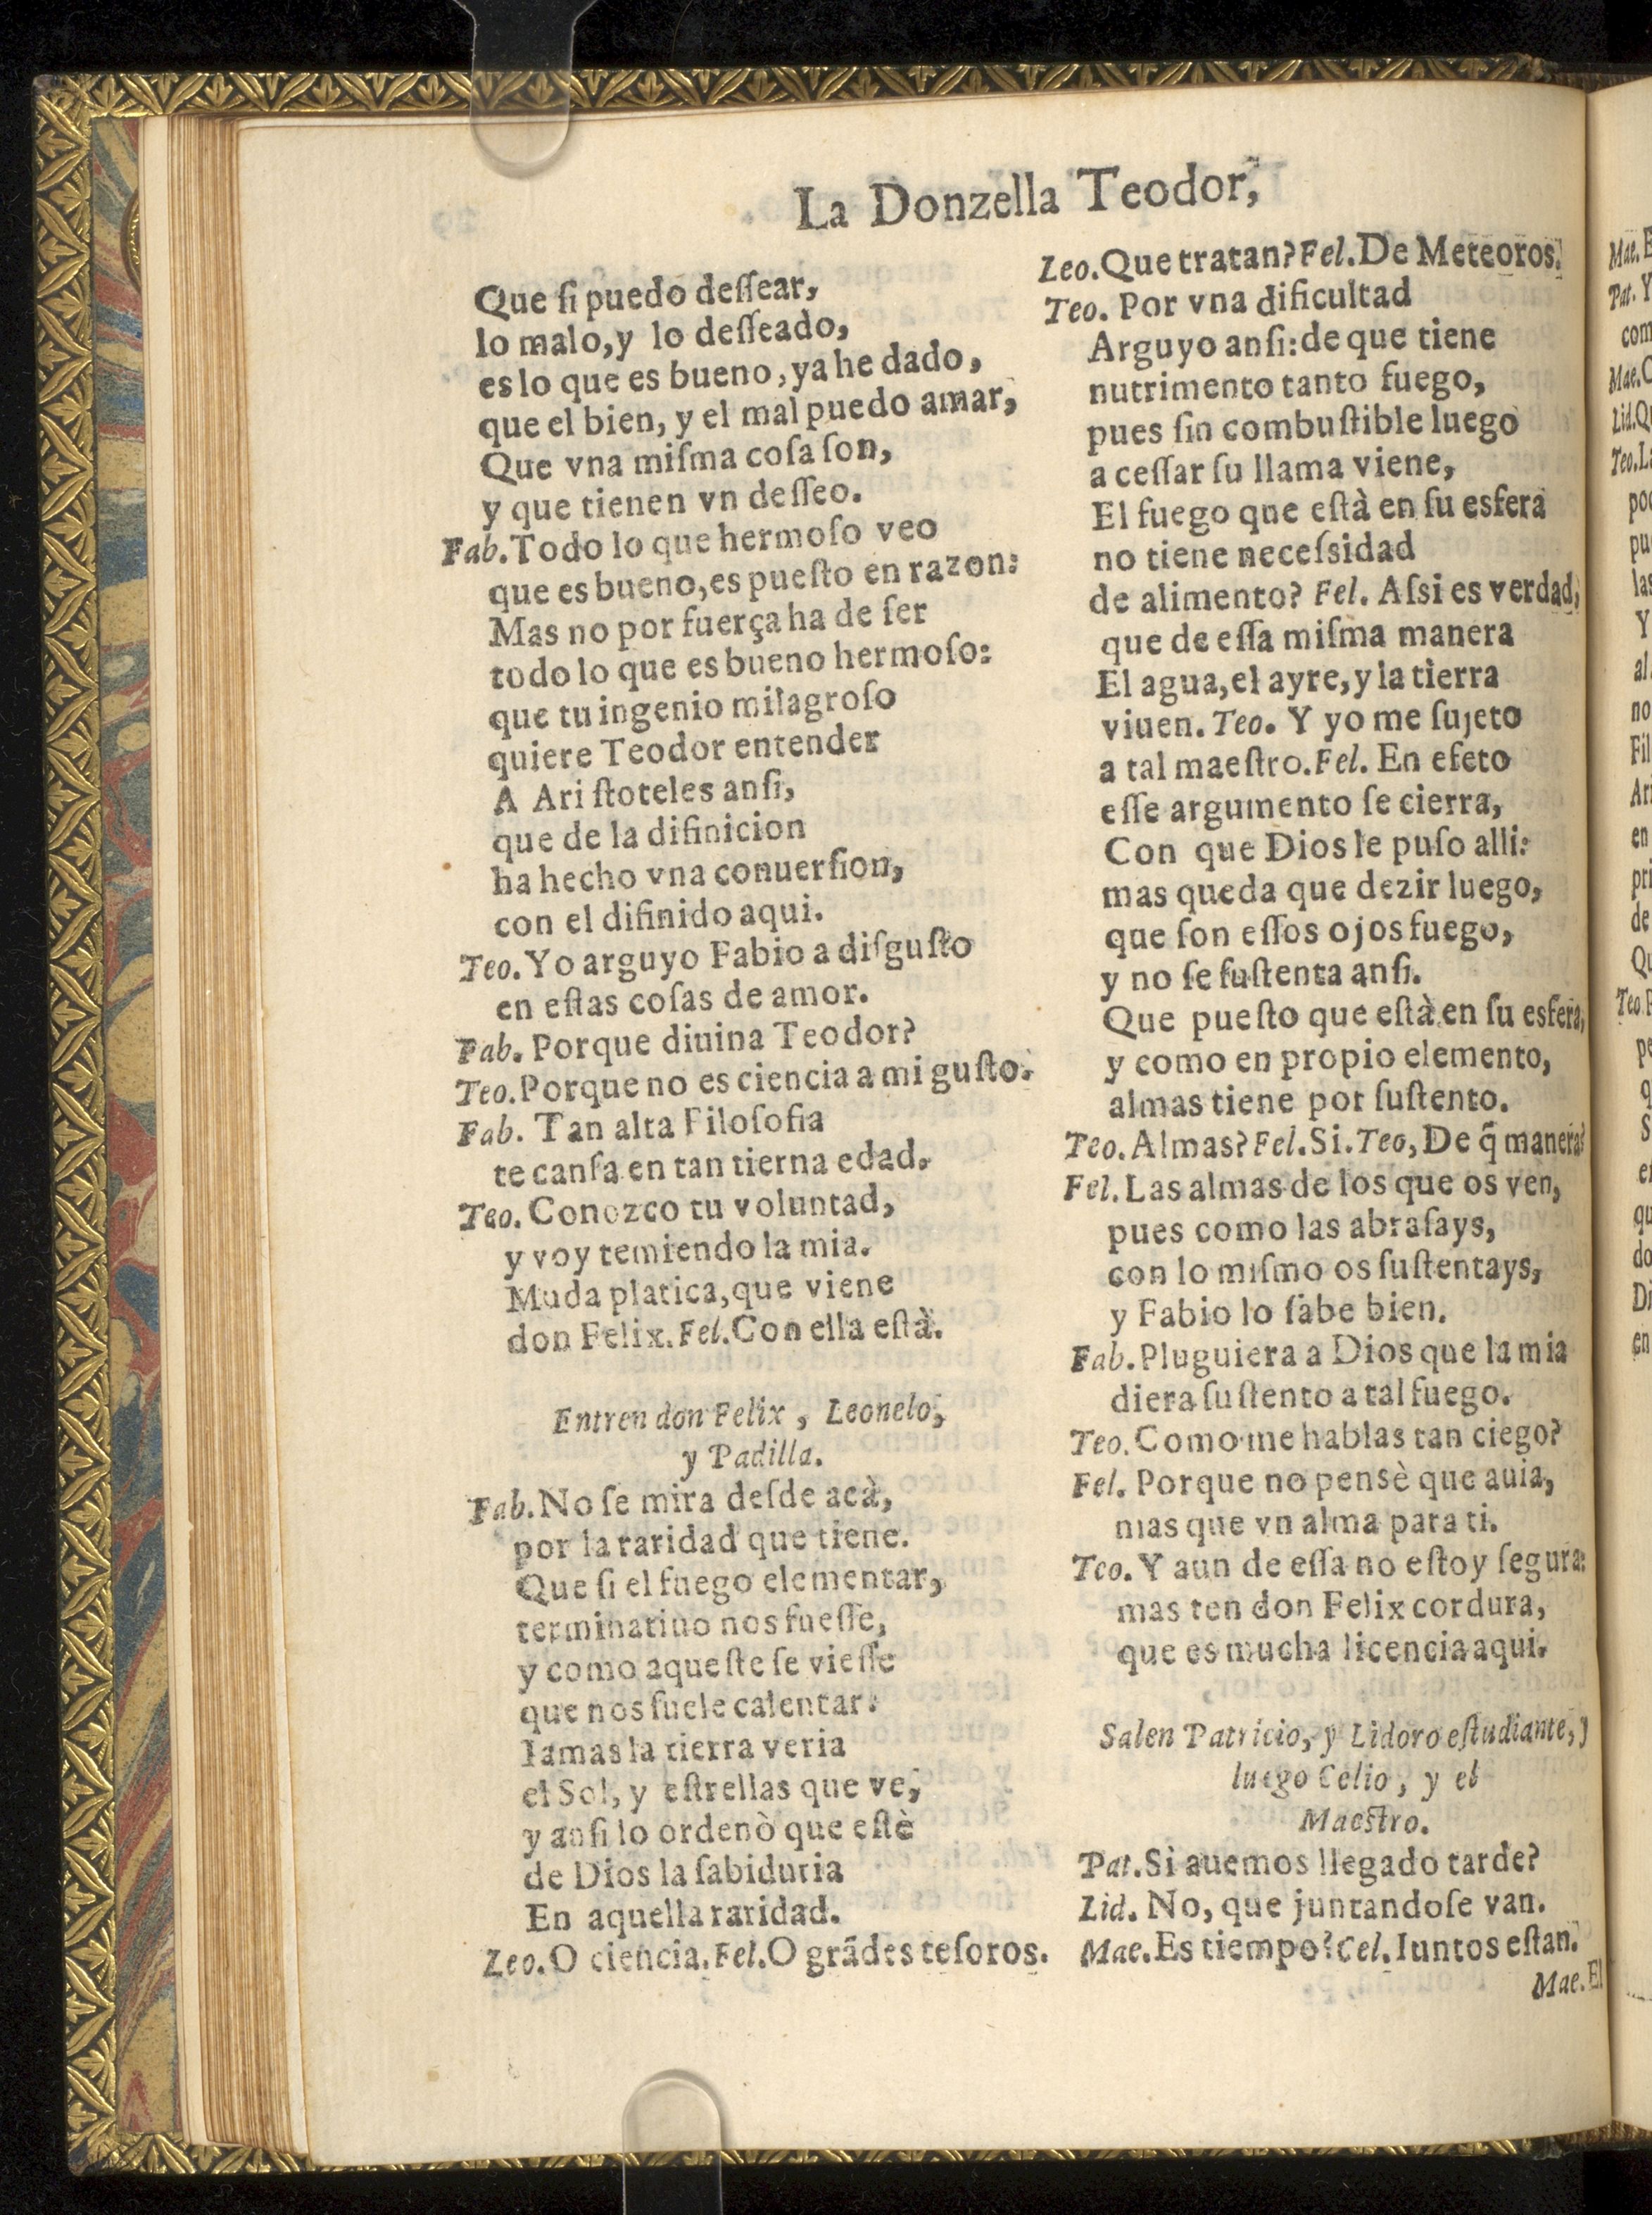 La Donzella Teodor,
Que ſi puedo deſſear,
lo malo, y lo deſſeado,
es lo que es bueno, ya he dado,
que el bien, y el mal puedo amar,
Que vna miſma coſa ſon,
y que tienen vn deſſeo.
Fab. Todo lo que hermoſo veo
que es bueno, es pueſto en razon:
Mas no por fuerça ha de ſer
todo lo que es bueno hermoſo:
que tu ingenio milagroſo
quiere Teodor entender
A Ariſtoteles anſi,
que de la difinicion
ha hecho vna conuerſion,
con el difinido aqui.
Teo. Yo arguyo Fabio a diſguſto
en eſtas coſas de amor.
Fab. Porque diuina Teodor?
Teo. Porque no es ciencia a mi guſto.
Fab. Tan alta Filoſofia
te canſa en tan tierna edad.
Teo. Conozco tu voluntad,
y voy temiendo la mia.
Muda platica, que viene
don Felix. Fel. Con ella eſtà.
Entren don Felix, Leonelo,
y Padilla.
Fab. No ſe mira deſde acà,
por la raridad que tiene.
Que ſi el fuego elementar,
terminatiuo nos fueſſe,
y como aqueſte ſe vieſſe
que nos ſuele calentar:
Iamas la tierra veria
el Sol, y eſtrellas que ve,
y anſi lo ordenò que eſtè
de Dios la ſabiduria
En aquella raridad.
Leo. O ciencia. Fel. O grãdes teſoros.
Leo. Que tratan? Fel. De Meteoros.
Teo. Por vna dificultad
Arguyo anſi: de que tiene
nutrimento tanto fuego,
pues ſin combuſtible luego
a ceſſar ſu llama viene,
El fuego que eſtà en ſu esfera
no tiene neceſsidad
de alimento? Fel. Aſsi es verdad,
que de eſſa miſma manera
El agua, el ayre, y la tierra
viuen. Teo. Y yo me ſujeto
a tal maeſtro. Fel. En efeto
eſſe argumento ſe cierra,
Con que Dios le puſo alli:
mas queda que dezir luego,
que ſon eſſos ojos fuego,
y no ſe ſuſtenta anſi.
Que pueſto que eſtà en ſu esfera,
y como en propio elemento,
almas tiene por ſuſtento.
Teo. Almas? Fel. Si. Teo, De q̃ manera?
Fel. Las almas de los que os ven,
pues como las abraſays,
con lo miſmo os ſuſtentays,
y Fabio lo ſabe bien.
Fab. Pluguiera a Dios que la mia
diera ſuſtento a tal fuego.
Teo. Como me hablas tan ciego?
Fel. Porque no pensè que auia,
mas que vn alma para ti.
Teo. Y aun de eſſa no eſtoy ſegura:
mas ten don Felix cordura,
que es mucha licencia aqui.
Salen Patricio, y Lidoro eſtudiante, y
luego Celio, y el
Maeſtro.
Pat. Si auemos llegado tarde?
Lid. No, que juntandoſe van.
Mae. Es tiempo? Cel. Iuntos eſtan.
Mae. El